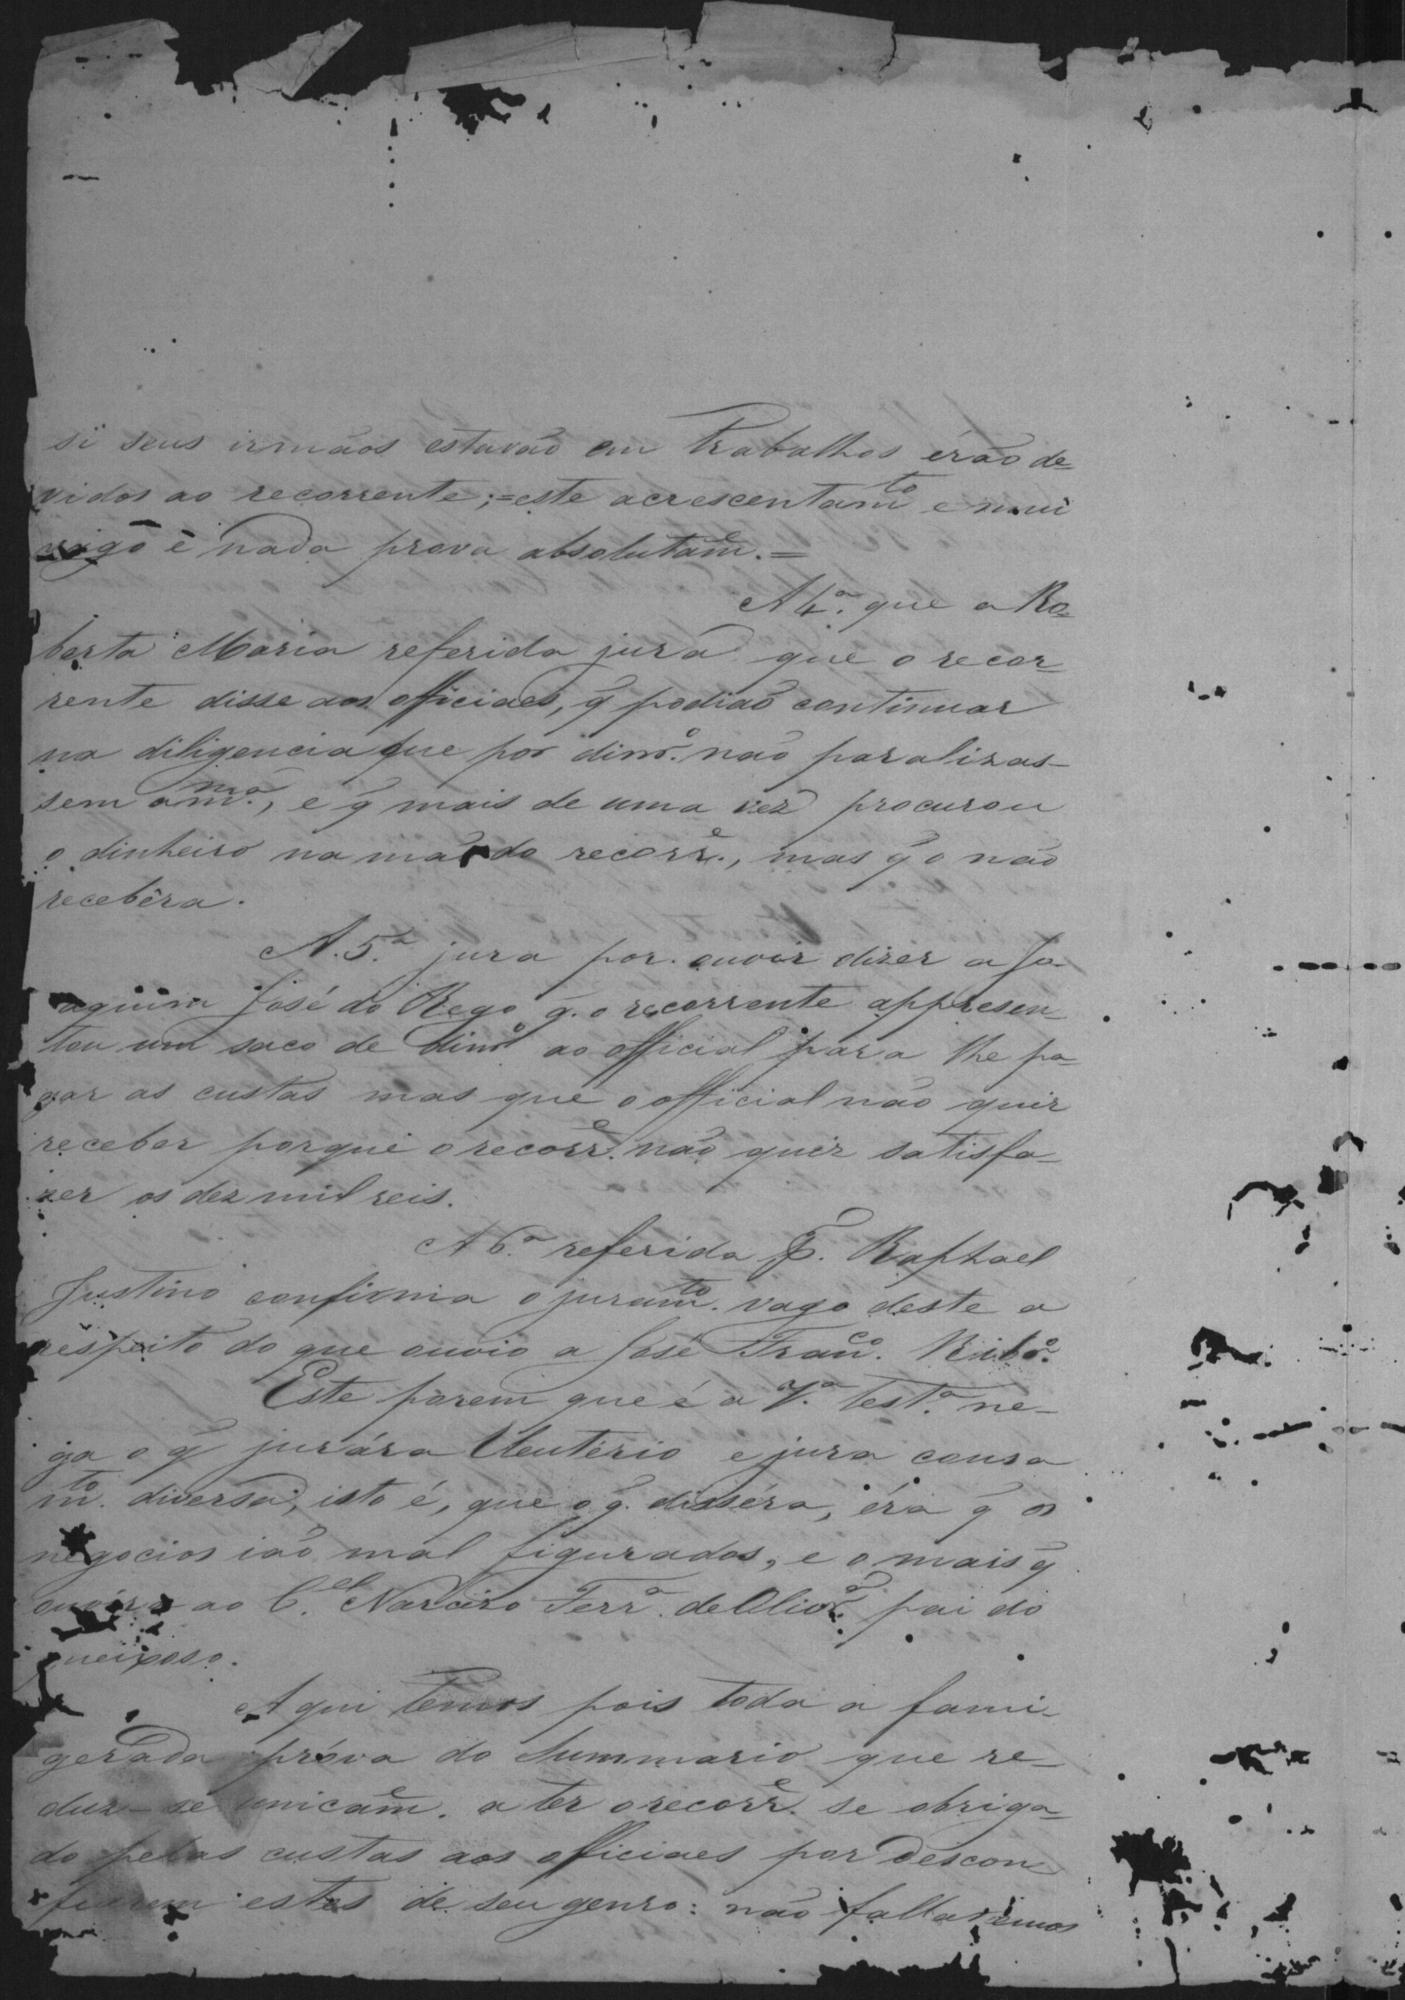 si seus irmãos estavão em trabalhos érão de=
vidos ao recorrente;=este acrescentam.to e mui
vago é nada prova absolutam.e=
A 4.a que a Ro=
berta Maria referida jura que o recor-
rente disse aos officiaes, q̃ podião continuar
na diligencia que por dinr.o não paralizas-
sem a m.ma, e q̃ mais de uma vez procurou
o dinheiro na mão do recorr.e, mas q̃ o não
recebêra.
A. 5.a jura por ouvir dizer a Jo-
aquim José do Rego q̃. o recorrente appresen-
tou um saco de dinr.o ao official para lhe pa-
gar as custas mas que o official não quiz
receber porque o recorr.e não quiz satisfa-
zer os dez mil reis.
A 6.a referida p. Raphael
Justino confirma o juram.to vago deste a
respeito do que ouvio a José Fran.co Ribr.o
Este porem que é a 7.a test.a ne-
ga o q̃ jurára Eleuterio e jura cousa
m.to diversa, isto é, que o q̃. disséra, éra q̃ os
negocios ião mal figurados, e o mais q̃
ouvíra ao C.el Narcizo Ferr.a de Oliv.ra pai do
queixoso.
Aqui temos pois toda a fami-
gerada próva do Summario que re-
duz-se unicam.e a ter o recorr.e se obriga-
do pelas custas aos officiaes por descon
fiarem estes de seu genro: não fallaremos